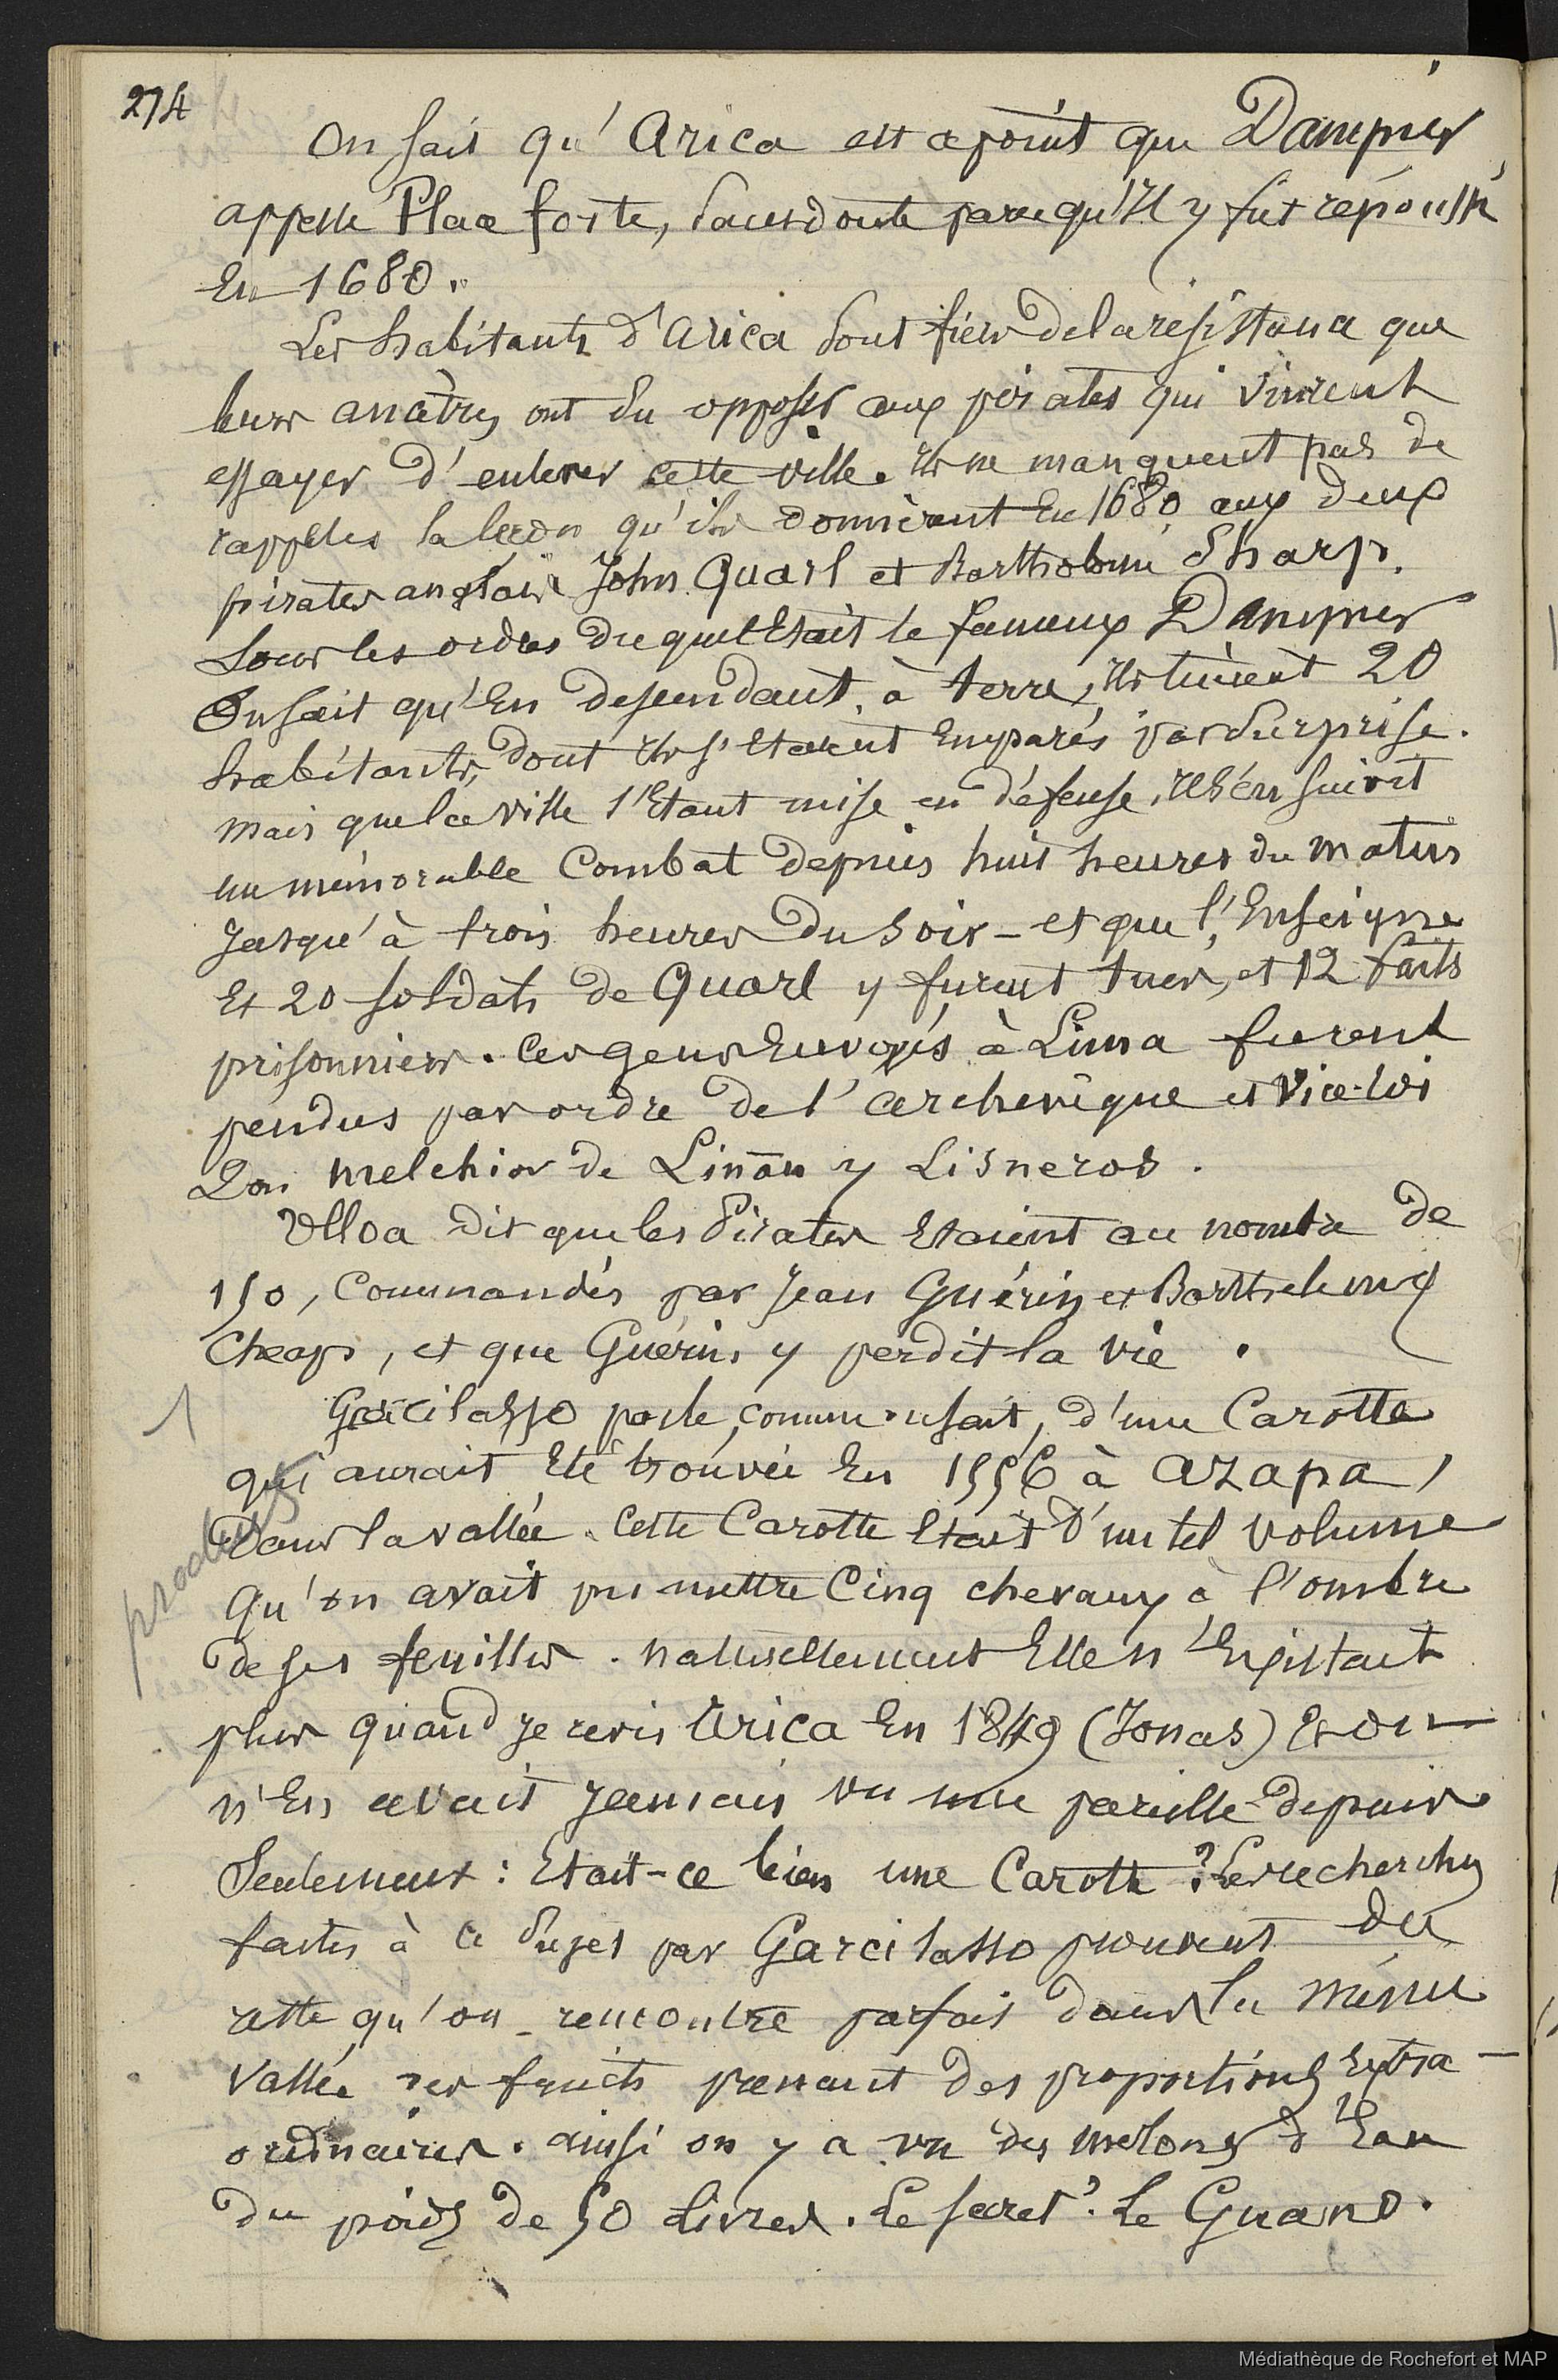 274
On sait qu'Arica est ce point que Dampier
appelle Place forte, sans doute parcequ'il y fut repoussé
En 1680.
Les habitants d'Arica sont fiers de la resistance que
leurs ancêtres ont du opposer aux pirates qui vinrent
essayer d'enlever cette ville. Ils ne manquent pas de
rappeler la leçon qu'ils donnèrent En 1680 aux deux
pirates anglais John Quarl et Bartholomé Sharp.
Sous les ordres duquel Etait le fameux Dampier
On sait qu'En descendant à terre, Ils tuèrent 20
habitants, dont Ils s'Etaient Emparés par Surprise.
mais que la ville s'Etant mise en défense, Il s'en suivit
un mémorable Combat depuis huit heures du matin
Jusqu'à trois heures du Soir - et que l'Enseigne
Et 20 soldats de Quarl y furent tués, et 12 faits
prisonniers. Ces gens Envoyés à Lima furent
pendus par ordre de l'archevêque et Vice-roi
Don Melchior de Linãn y Lisneros.
Ulloa dit que les Pirates Etaient au nombre de
150, Commandés par Jean Guérin et Barthelemy
Cheap, et que Guérin y perdit la vie.
1
Garcilasso parle, comme on sait, d'une Carotte
qui aurait Eté trouvée En 1556 à Azapa,
Dans la vallée. Cette Carotte Etait d'un tel volume
produits
qu'on avait pu mettre Cinq chevaux à l'ombre
de ses feuilles. naturellement Elle n'Existait
plus quand Je revis Arica En 1849 (Jonas) Et on
n'En avait Jamais vu une pareille depuis
Seulement : Etait-ce bien une Carotte ? Les recherches
faites à ce Sujet par Garcilasso prouvent du
reste qu'on rencontre parfois dans la même
Vallée des fruits prenant des proportions Extra-
ordinaires. ainsi on y a vu des melons d'Eau
du poids de 50 Livres. Le secret ? Le Guano.
Médiathèque de Rochefort et MAP